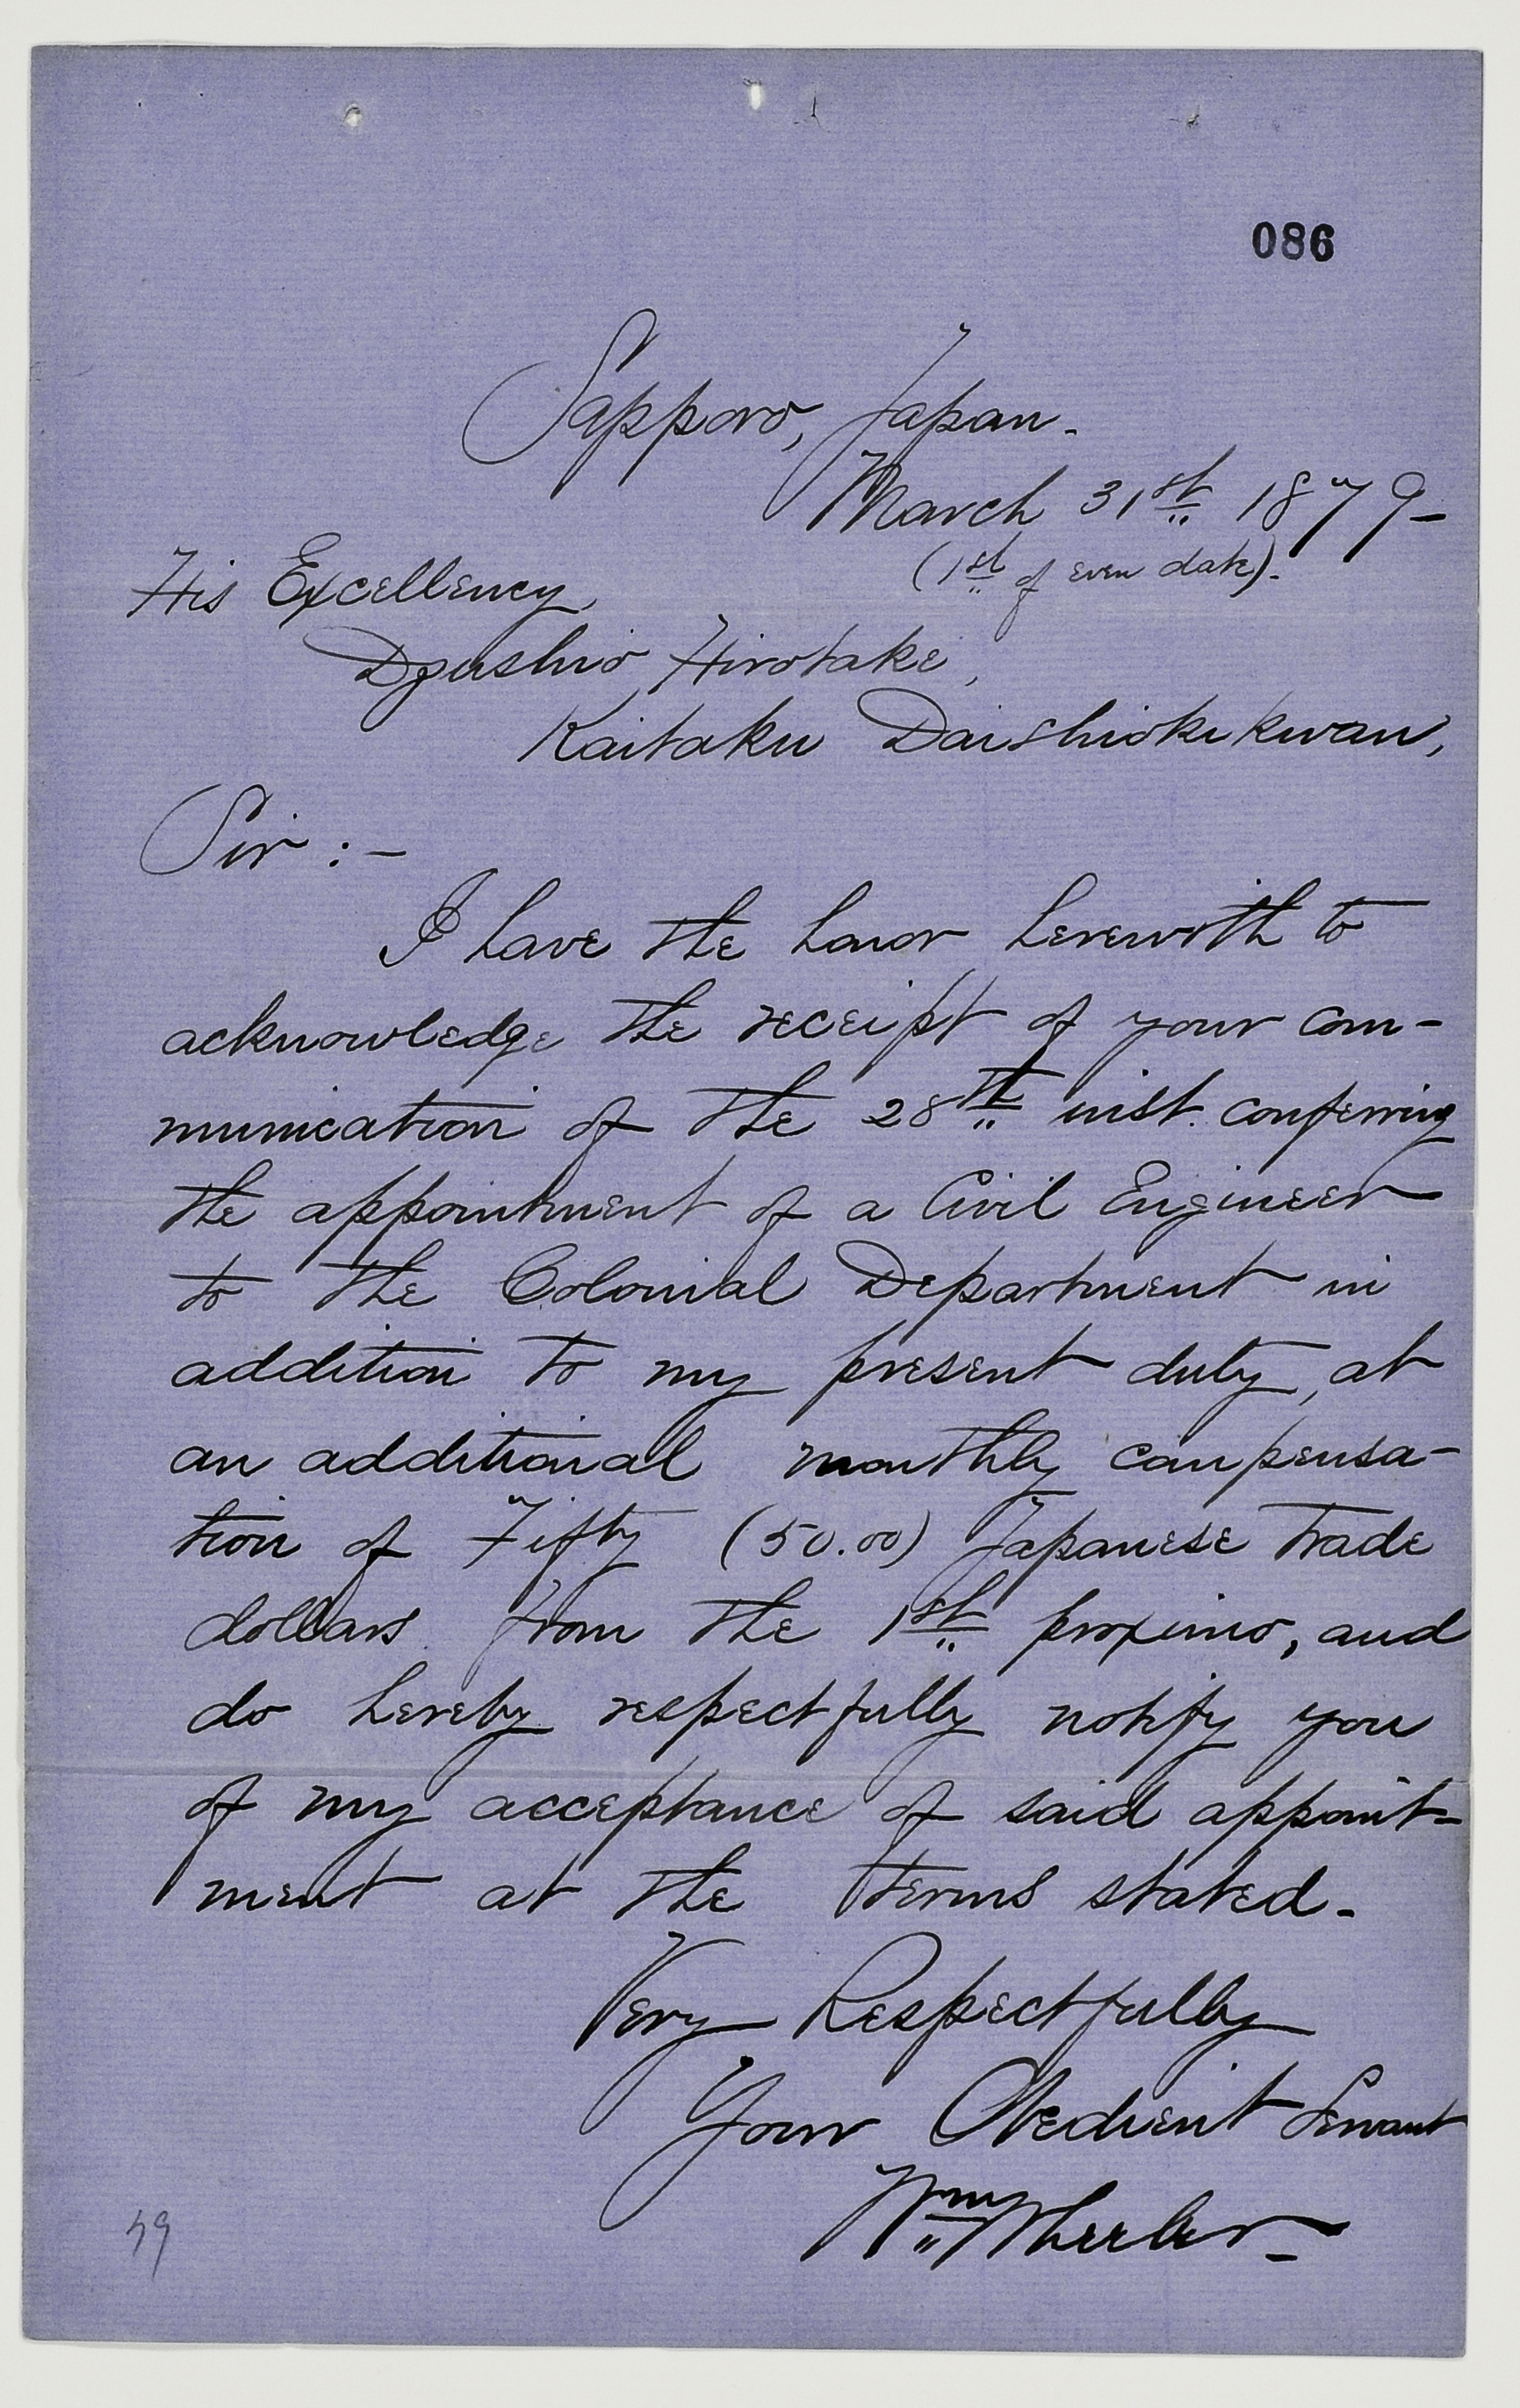 086
Sapporo, Japan.
March 31st 1879
(1st of even date).
His Excellency,
Dzushio Hirotake,
Kaitaku Daishioki kwan,
Sir :-
I have the honor herewith to
acknowledge the receipt of your com-
munication of the 28th inst. conferring
the appointment of a Civil Engineer
to the Colonial Department in
addition to my present duty, at
an additional monthly compensa-
tion of Fifty (50.00) Japanese trade
dollars from the 1st proximo, and
do hereby respectfully notify you
of my acceptance of said appoint-
ment at the terms stated.
Very Respectfully
Your Obedient Servant
Wm Wheeler
49